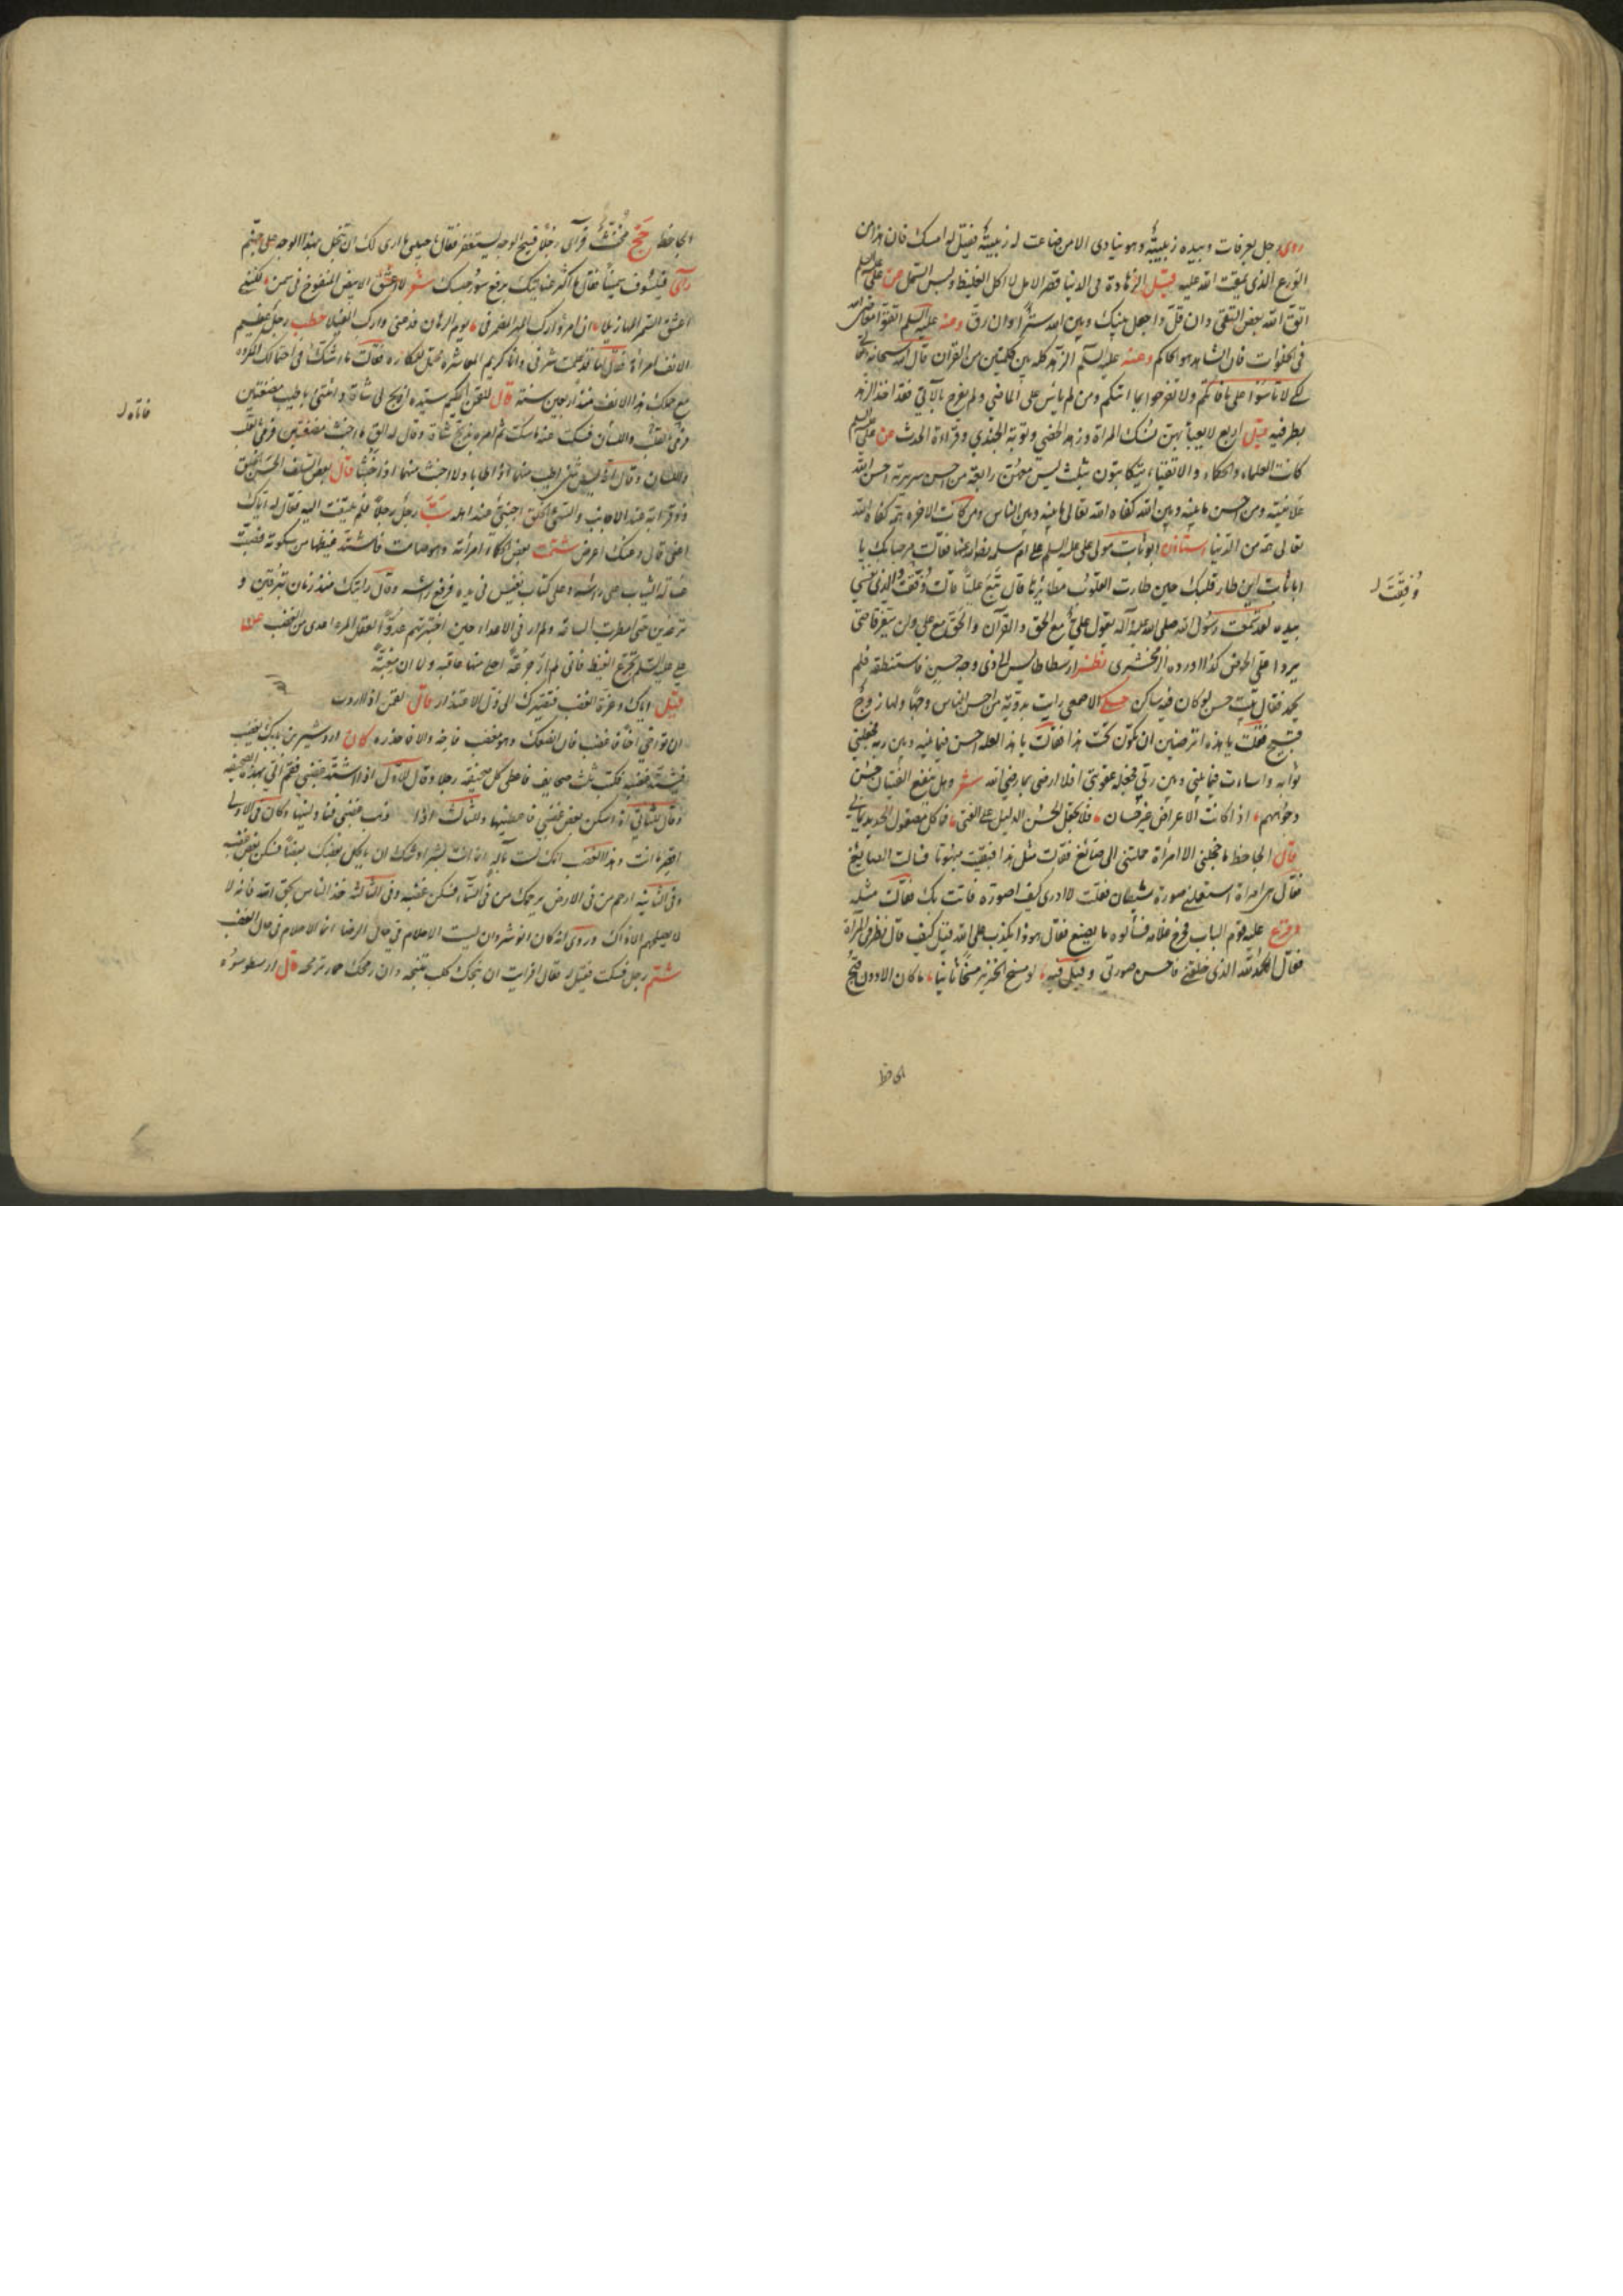 روى رجل بعرفات وبيده زبيبة وهو ينادى الا من ضاعت له زبيبة فقيل له امسك فان هذا من
الورع الذى يمقت الله عليه قيل الزهادة فى الدنيا قصر الامل لا اكل الغليظ ولبس الشمل عن على عليه السلم
اتق الله بعض التقى وان قل واجعل بينك وبين الله سترا وان رق وعنه عليه السلم اتقوا معاصى الله
فى الخلوات فان الشاهد هو الحاكم وعنه عليه السلم الزهد كله بين كلمتين من القرآن قال الله سبحانه
لكى لا تأسوا على ما فاتكم ولا تفرحوا بما اتيكم ومن لم يأس على الماضى ولم يفرح بالآتى فقد اخذ الزهد
بطرفيه قيل اربع لا يعبأ بهن نسك المراة وزهد الخصى وتوبة الجندى وقراءة الحدث عن على عليه السلم
كانت العلماء والحكماء والاتقياء يتكاتبون بثلث ليس معهن رابعة من احسن سريرته احسن الله
علانيته ومن احسن ما بينه وبين الله كفاه الله تعالى ما بينه وبين الناس ومن كانت الاخرة همه كفاه الله
تعالى همه من الدنيا استاذن ابو ثابت مولى على عليه السلم على ام سلمة رضى الله عنها فقالت مرحبا بك يا
ابا ثابت اين طار قلبك حين طارت القلوب مطايرها قال تبع عليا قالت وفقت والذى نفسى
بيده لقد سمعت رسول الله صلى الله عليه وآله يقول على مع الحق والقرآن والحق مع على ولن يتفرقا حتى
يردا على الحوض كذا اورده الزمخشرى نظر ارسطاطاليس الى ذى وجه حسن فاستنطقه فلم
يحمد فقال بيت حسن لو كان فيه ساكن حكى الاصمعى رايت بدوية من احسن الناس وجها ولها زوج
قبيح فقلت يا هذه اترضين ان تكونى تحت هذا فقالت يا هذا لعله احسن فيما بينه وبين ربه فجعلنى
ثوابه واسات فيما بينى وبين ربى فجعله عقوبتى افلا ارضى بما رضى الله شعر وهل ينفع الفتيان حسن
وجوههم اذا كانت الاعراض غير حسان فلا تجعل الحسن الدليل على الفتى فما كل مصقول الحديد يمانى
قال الجاحظ ما اخجلنى الا امراة حملتنى الى صائغ فقالت مثل هذا فبقيت مبهوتا فسالت الصايغ
فقال هى امراة استعملتنى صورة شيطان فقلت لا ادرى كيف اصوره فاتت بك فقالت مثله
عليه قوم الباب فخرج غلامه فسألوه ما يصنع فقال هو ذا يكذب على الله قيل كيف قال نظر فى المرآة
فقال الحمد لله الذى خلقنى فاحسن صورتى وقيل فيه لو يمسخ الخنزير مسخا ثانيا ما كان الا دون قبح
الجاحظ
وفقت
الجاحظ حج مخنث فرآى رجلا قبيح الوجه يستغفر فقال يا حبيبى ما ارى لك ان تبخل بهذا الوجه على جهنم
رآى فيلسوف سمينا فقال ما اكثر عنايتك برفع سور حبسك شعر لا اعشق الابيض المنفوخ من سمن لكننى
اعشق السمر المهازيلا انى امرؤ اركب المهر المضمر فى يوم الرهان فدعنى واركب الفيلا خطب رجل عظيم
الانف امراة فقال لها قد علمت شرفى وانا كريم المعاشرة محتمل للمكاره فقالت ما اشك فى احتمالك المكاره
مع حملك هذا الانف منذ اربعين سنة قال للقمن الحكيم سيده اذبح لى شاة وائتنى باطيب مضغتين
فاتاه بالقلب واللسان فسكت عنه ما سكت ثم امره بذبح شاة وقال له الق اخبث مضغتين فرمى القلب
واللسان وقال انه ليس شئ اطيب منهما اذا طابا ولا اخبث منهما اذا خبثا قال بعض السلف الحسن الخلق
ذو قرابة عند الاجانب والسيئ الخلق اجنبى عند اهله سب رجل رجلا فلم يلتفت اليه فقال له اياك
اعنى قال وعنك اعرض شتمت بعض الحكماء امراته وهو صامت فاشتد غيظها من سكوته فصبت
غسالة الثياب على راسه وعلى كتاب نفيس فى يده فرفع راسه وقال رايتك منذ زمان تبرقين و
ترعدين حتى امطرت الساعة ولم ار فى الاعداء حين اختبرتهم عدوا لعقل المرء اعدى من الغضب
على عليه السلم تجرع الغيظ فانى لم ار جرعة احلى منها عاقبة ولا الذ مغبة
قيل اياك وعزة الغضب فتصيرك الى ذل الاعتذار قال لقمن اذا اردت
ان تواخى اخا فاغضبه فان انصفك وهو مغضب فآخه والا فاحذره كان اردشير بن بابك يغضب
فيشتد غضبه فكتب ثلث صحايف فاعطى كل صحيفة رجلا وقال للاول اذا اشتد غضبى فقم الى بهذه الصحيفة
وقال للثانى اذا سكن بعض غضبى فاعطنيها وللثالث اذا ذهب غضبى فناولنيها وكان فى الاولى
اقصر ما انت وهذا الغضب انك لست باله انما انت بشر اوشك ان ياكل بعضك بعضا فسكن بعض غضبه
وفى الثانية ارحم من فى الارض يرحمك من فى السماء فسكن غضبه وفى الثالثة خذ الناس بحق الله فانه لا
لا يصلحهم الا ذاك وروى انه كان انوشروان ليست الاحلام فى حال الرضا انما الاحلام فى حال الغضب
شتم رجل فسكت فقيل له فقال افرايت ان نبحك كلب تنبحه وان رمحك حمار ترمحه قال ارسطو
فاتاه